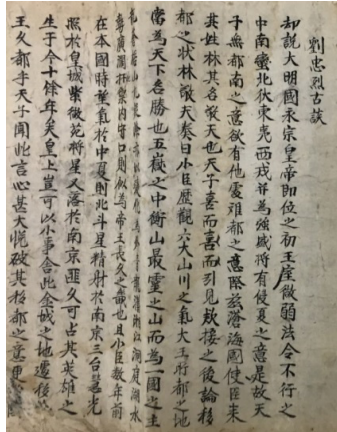 劉忠烈古談
却說大明國永宗皇帝即位之初王度微弱法令不行之
中南蛮北狄東夷西戎并為強盛將有侵夏之意是故天
子無都南之意欲有他處难都之意際茲滄海國使臣来
其姓林其名敬天也天子喜而善而引見欵接之後論移
都之状林敬天奏曰小臣歷觀六大山川之氣大王所都之地
當為天下名勝也五嶽之中衡山最靈之山而為一國之主
山九 青龍 湖洞庭湖水
廣濶 內守口則似為帝王長久之 也且小臣数年前
在本國時望氣於中夏則北斗星精射於南京三台慧光
照於皇城紫微苑將星又落於南京匪久可占其英雄之
生于今十餘年矣皇上豈可以小事舍此金城之地遷
王久都乎天子聞此言心甚大悦破其移都之意更